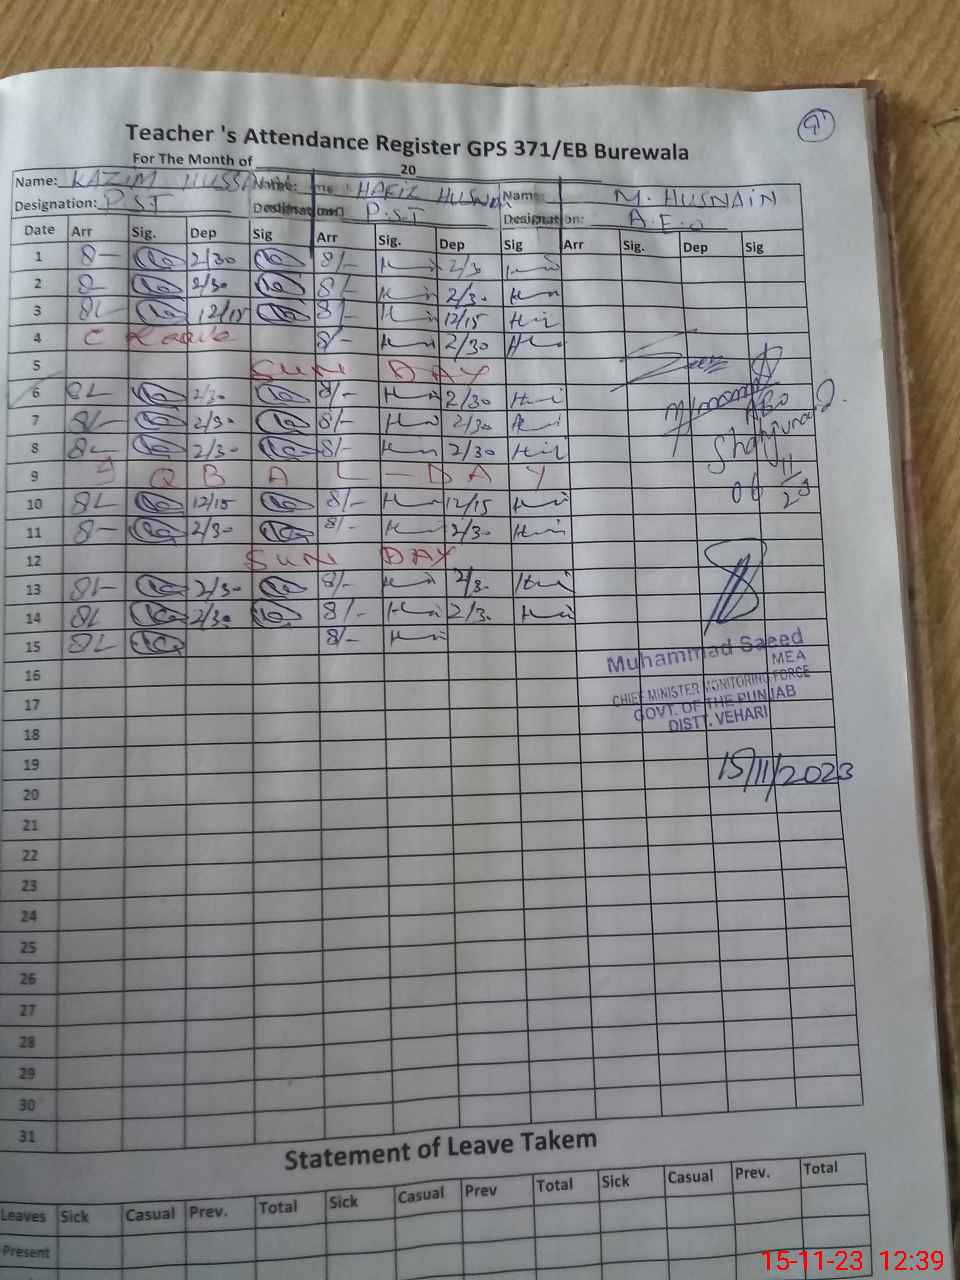 Teacher 's Attendance Register GPS 371/EB Burewala
For The Month of 20
Name: KAZIM HUSSA Name: HAFIZ HUSNA Name: M. HUSNAIN
Designation: P.S.T Designation: P.S.T Designation: A.E.O
Date Arr Sig. Dep Sig Arr Sig. Dep Sig Arr Sig. Dep Sig
1 8- 2/30 8/- 2/30
2 8- 2/30 8/- 2/30
3 8/- 12/15 8/- 12/15
4 C Leave 8/- 2/30
5 SUN DAY
6 8/- 2/30 8/- 2/30
7 8/- 2/30 8/- 2/30
8 8/- 2/30 8/- 2/30
9 IQBAL-DAY
10 8/- 12/15 8/- 12/15
11 8- 2/30 8/- 2/30
12 SUN DAY
13 8/- 2/30 8/- 2/30
14 8/- 2/30 8/- 2/30
15 8/- 8/-
16
17
18
19
20
21
22
23
24
25
26
27
28
29
30
31
06/11/23
Muhammad Saeed
MEA
CHIEF MINISTER MONITORING FORCE
GOVT. OF THE PUNJAB
DISTT. VEHARI
15/11/2023
Statement of Leave Takem
Leaves Sick Casual Prev. Total Sick Casual Prev Total Sick Casual Prev. Total
Present
15-11-23 12:39